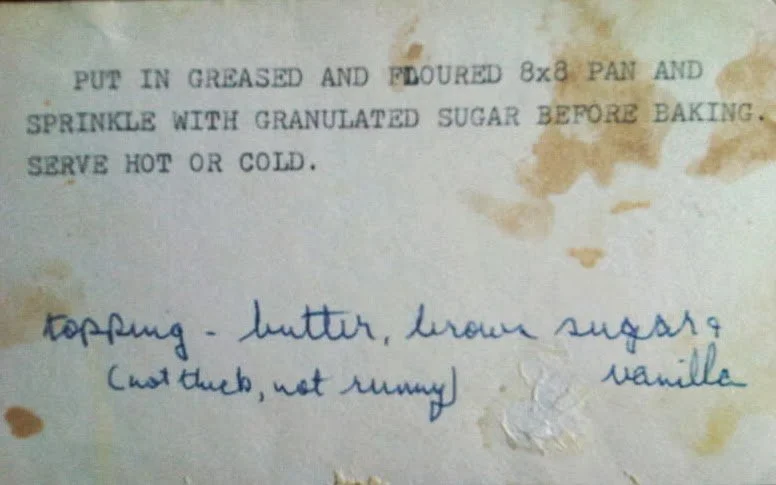 PUT IN GREASED AND FLOURED 8x8 PAN AND
SPRINKLE WITH GRANULATED SUGAR BEFORE BAKING.
SERVE HOT OR COLD.
topping - butter, brown sugar &
vanilla
(not thick, not runny)